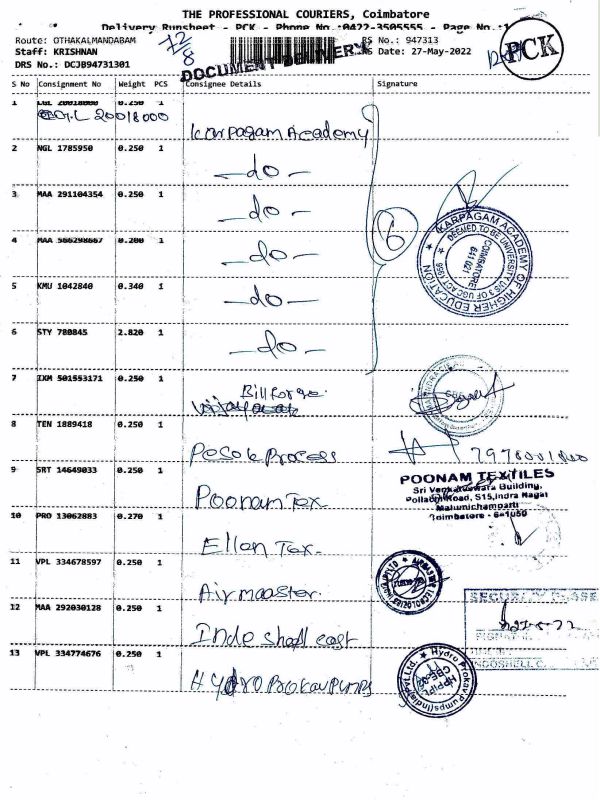 THE PROFESSIONAL COURIERS, Coimbatore
Delivery Runsheet - PCK - Phone No.:0422-3505555 - Page No.:1
Route: OTHAKALMANDABAM
RS No.: 947313
Staff: KRISHNAN
RS Date: 27-May-2022
DRS No.: DCJB94731301
DOCUMENT DELIVERY
PCK
S No Consignment No Weight PCS Consignee Details Signature
1 CGL 20018000 0.250 1
CGL 20018000 Karpagam Academy
2 NGL 1785950 0.250 1
-do-
3 MAA 291104354 0.250 1
-do-
4 MAA 566298667 0.200 1
-do-
5 KMU 1042840 0.340 1
-do-
6 STY 780845 2.820 1
-do-
6
KARPAGAM ACADEMY OF HIGHER EDUCATION
DEEMED TO BE UNIVERSITY U/S 3 OF UGC ACT 1956
COIMBATORE
641 021
7 IXM 501553171 0.250 1
Billforge
8 TEN 1889418 0.250 1
Process
9 SRT 14649033 0.250 1
Poonam Tex
POONAM TEXTILES
Sri Venkateswara Building,
Pollachi Road, S15, Indra Nagar
Malumichampatti
Coimbatore - 641050
10 PRO 13062883 0.270 1
Ellen Tex.
11 VPL 334678597 0.250 1
Airmaaster.
12 MAA 292030128 0.250 1
Indo shell cast
SECURITY
27-5-22
INDOSHELL C
13 VPL 334774676 0.250 1
HYDRO PROKAV PUMPS
Hydro Prokav Pumps (India) Pvt. Ltd.
HPPIPL
CBE